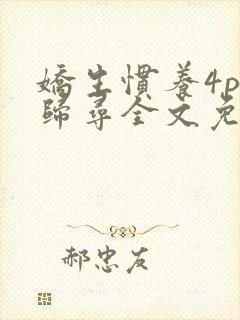 嬌生慣養4p
歸尋全文免
郝忠友